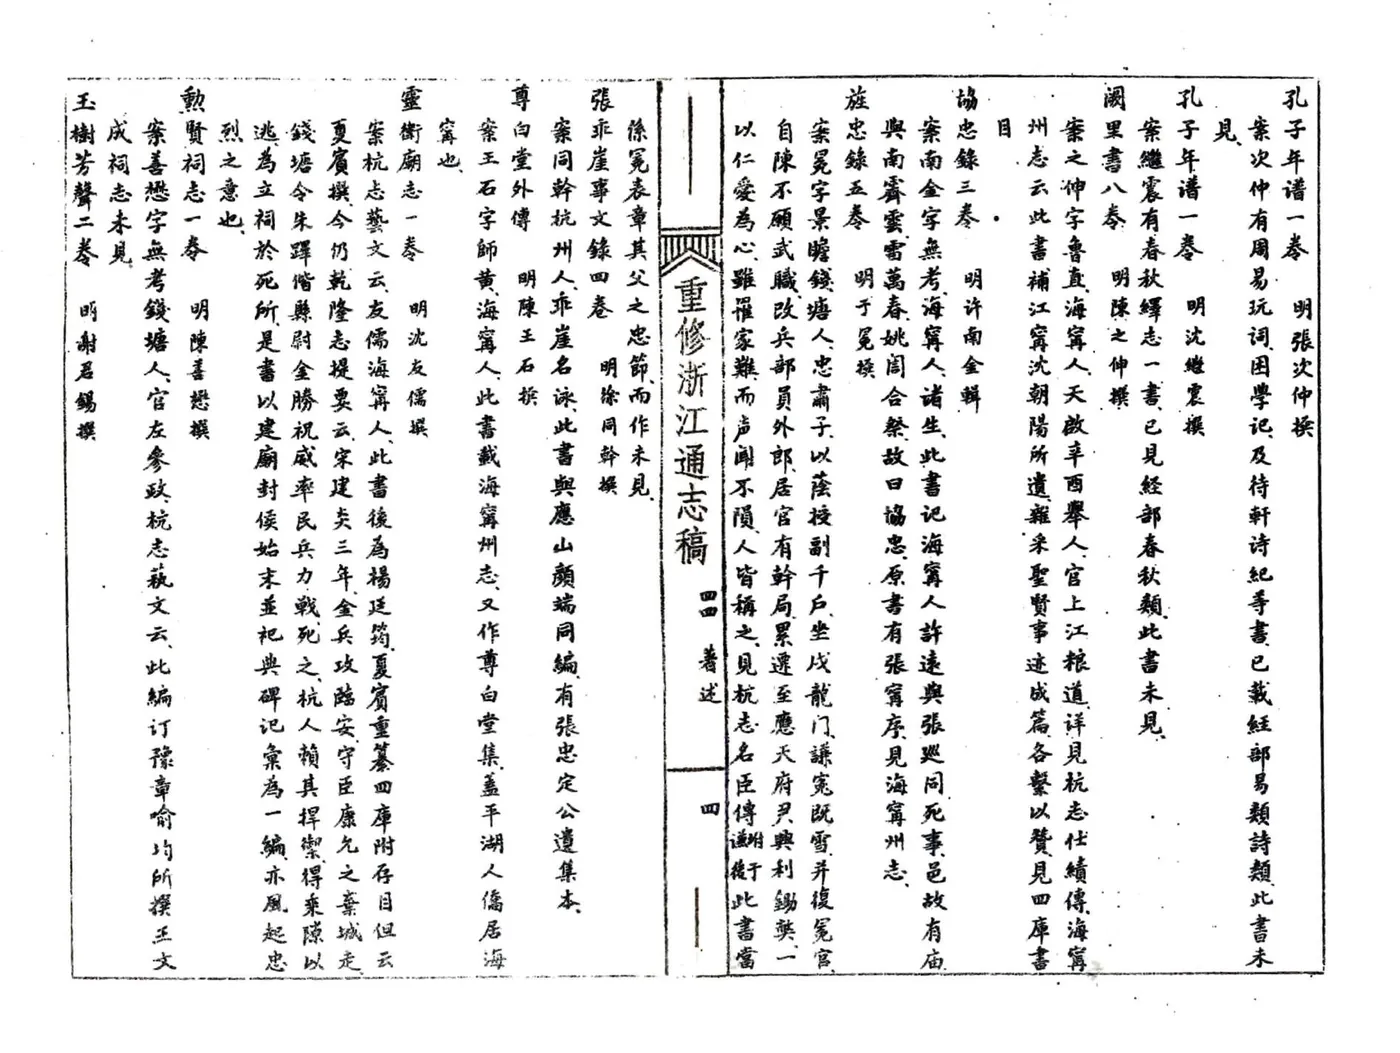 孔子年谱一卷　明張次仲撰
案次仲有周易玩词困學记、及待軒诗紀等書、已載经部易類詩類、此書未
見、
孔子年谱一卷　明沈继震撰
案继震有春秋繹志一書、已見经部春秋類、此書未見、
阙里書八卷　明陳之伸撰
案之伸字魯直、海甯人、天啟辛酉舉人、官上江粮道、详見杭志仕績傳、海甯
州志云此書補江甯沈朝陽所遺、雜采聖賢事迹成篇、各繫以贊、見四庫書
目
協忠錄三卷　明许南金輯
案南金字無考、海甯人、诸生、此書记海甯人許遠與張巡同死事、邑故有庙
與南霽雲雷萬春姚訚合祭、故曰協忠、原書有張甯序、見海甯州志、
旌忠錄五卷　明于冕撰
案冕字景瞻錢塘人、忠肅子、以蔭授副千戶、坐戍龍门、謙冤既雪、并復冕官、
自陳不願武職、改兵部員外郎、居官有幹局、累遷至應天府尹興利鋤獘、一
以仁愛為心、雖罹家難、而声闻不隕、人皆稱之、見杭志名臣傳附于谦後此書當
重修浙江通志稿　四四　著述　四
係冕表章其父之忠節、而作未見、
張乖崖事文錄四卷　明徐同幹撰
案同幹杭州人、乖崖名泳、此書與應山顏端同編、有張忠定公遺集本、
尊白堂外傳　明陳王石撰
案王石字師黄、海甯人、此書載海甯州志、又作尊白堂集、盖平湖人僑居海
甯也、
靈衛廟志一卷　明沈友儒撰
案杭志藝文云、友儒海甯人、此書後為楊廷筠、夏賓重纂四庫附存目但云
夏賓撰、今仍乾隆志提要云、宋建炎三年、金兵攻臨安、守臣康允之棄城走、
錢塘令朱蹕偕縣尉金勝祝威率民兵力戰、死之、杭人賴其捍禦、得乘隙以
逃、為立祠於死所、是書以建廟封侯始末並祀典碑记彙為一編、亦風起忠
烈之意也、
勲賢祠志一卷　明陳善懋撰
案善懋字無考錢塘人、官左參政、杭志藝文云、此編订豫章喻均所撰王文
成祠志未見
玉樹芳聲二卷　明谢君錫撰